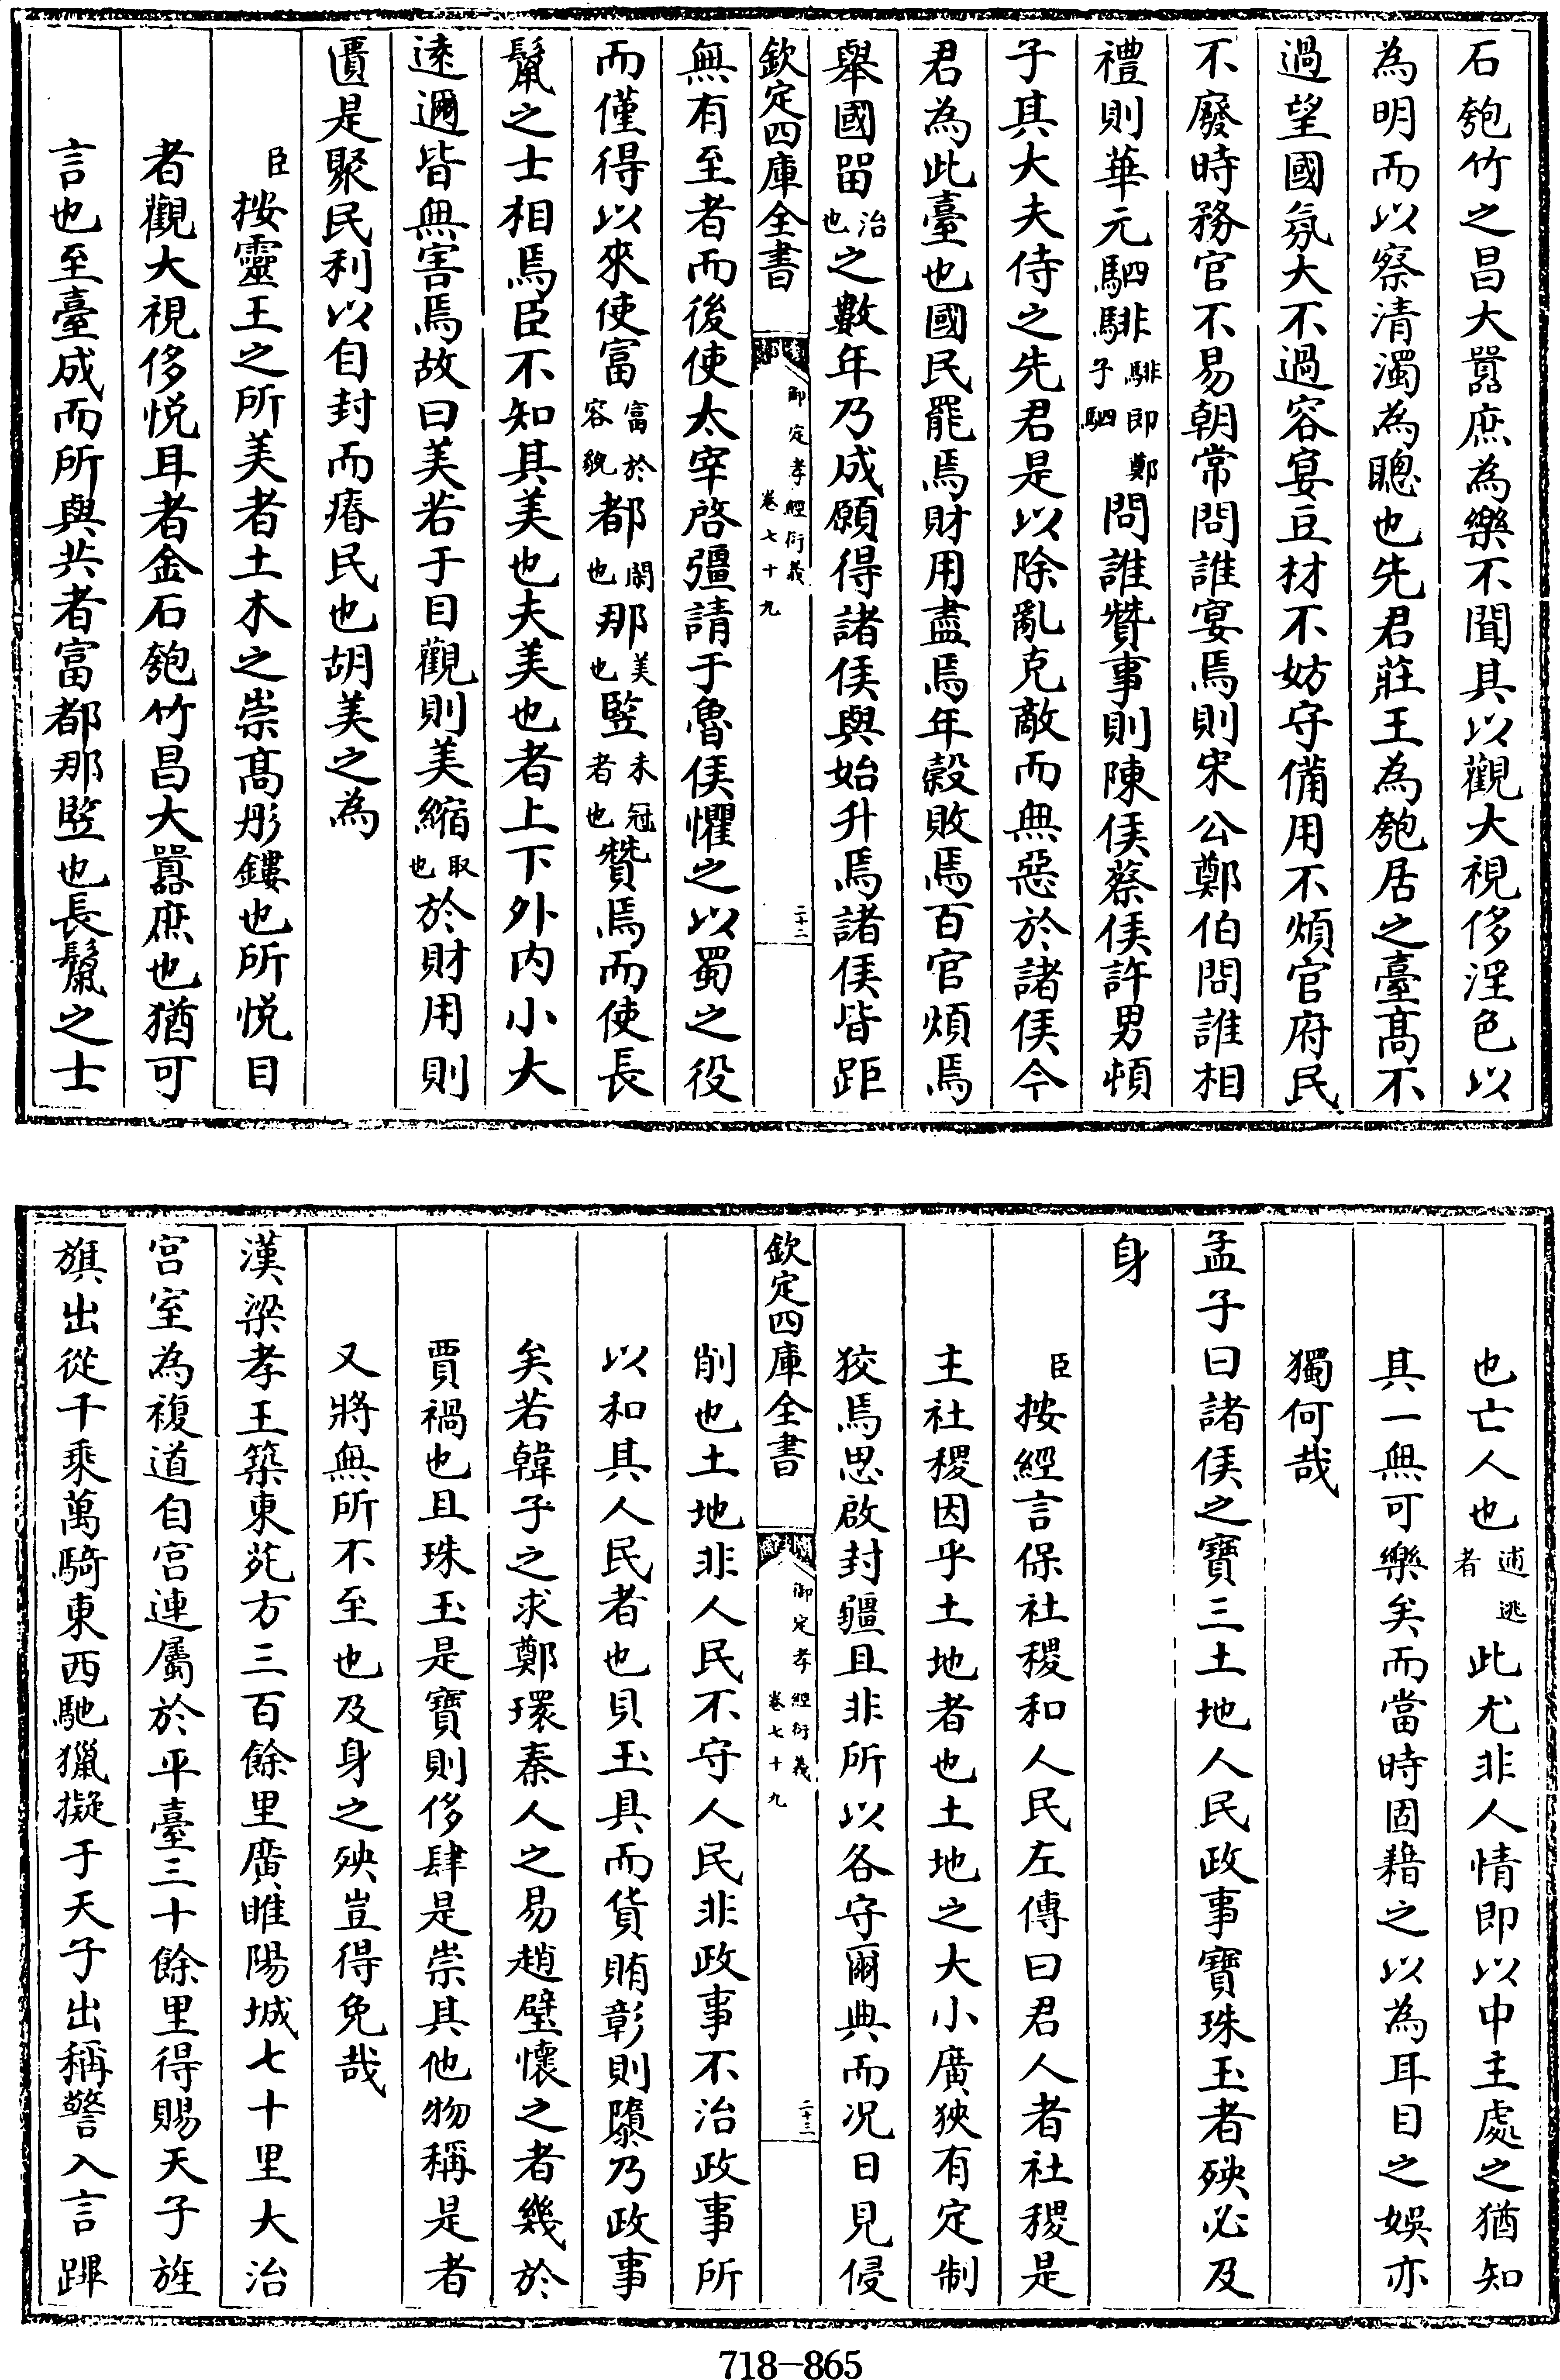 石匏竹之昌大囂庶為樂不聞其以觀大視侈淫色以
為明而以察清濁為聰也先君莊王為匏居之臺髙不
過望國氛大不過容宴豆材不妨守備用不煩官府民
不廢時務官不易朝常問誰宴焉則宋公鄭伯問誰相
禮則華元駟騑騑即鄭子駟問誰贊事則陳侯蔡侯許男頓
子其大夫侍之先君是以除亂克敵而無惡於諸侯今
君為此臺也國民罷焉財用盡焉年榖敗焉百官煩焉
舉國畱治也之數年乃成願得諸侯與始升焉諸侯皆距
欽定四庫全書 御定孝經衍義卷七十九 二十二
無有至者而後使太宰啓彊請于魯侯懼之以蜀之役
而僅得以來使富富於容貌都閑也那美也豎未冠者也贊焉而使長
鬣之士相焉臣不知其美也夫美也者上下外内小大
逺邇皆無害焉故曰美若于目觀則美縮取也於財用則
匱是聚民利以自封而瘠民也胡美之為
臣按靈王之所美者土木之崇髙彤鏤也所悦目
者觀大視侈悦耳者金石匏竹昌大囂庶也猶可
言也至臺成而所與共者富都那豎也長鬣之士
也亡人也逋逃者此尤非人情即以中主處之猶知
其一無可樂矣而當時固藉之以為耳目之娛亦
獨何哉
孟子曰諸侯之寶三土地人民政事寶珠玉者殃必及
身
臣按經言保社稷和人民左傳曰君人者社稷是
主社稷因乎土地者也土地之大小廣狹有定制
狡焉思啟封疆且非所以各守爾典而况日見侵
欽定四庫全書 御定孝經衍義卷七十九 二十三
削也土地非人民不守人民非政事不治政事所
以和其人民者也貝玉具而貨賄彰則隳乃政事
矣若韓子之求鄭環秦人之易趙璧懷之者幾於
賈禍也且珠玉是寶則侈肆是崇其他物稱是者
又將無所不至也及身之殃豈得免哉
漢梁孝王築東苑方三百餘里廣睢陽城七十里大治
宫室為複道自宫連屬於平臺三十餘里得賜天子旌
旗出從千乘萬騎東西馳獵擬于天子出稱警入言蹕
718-865